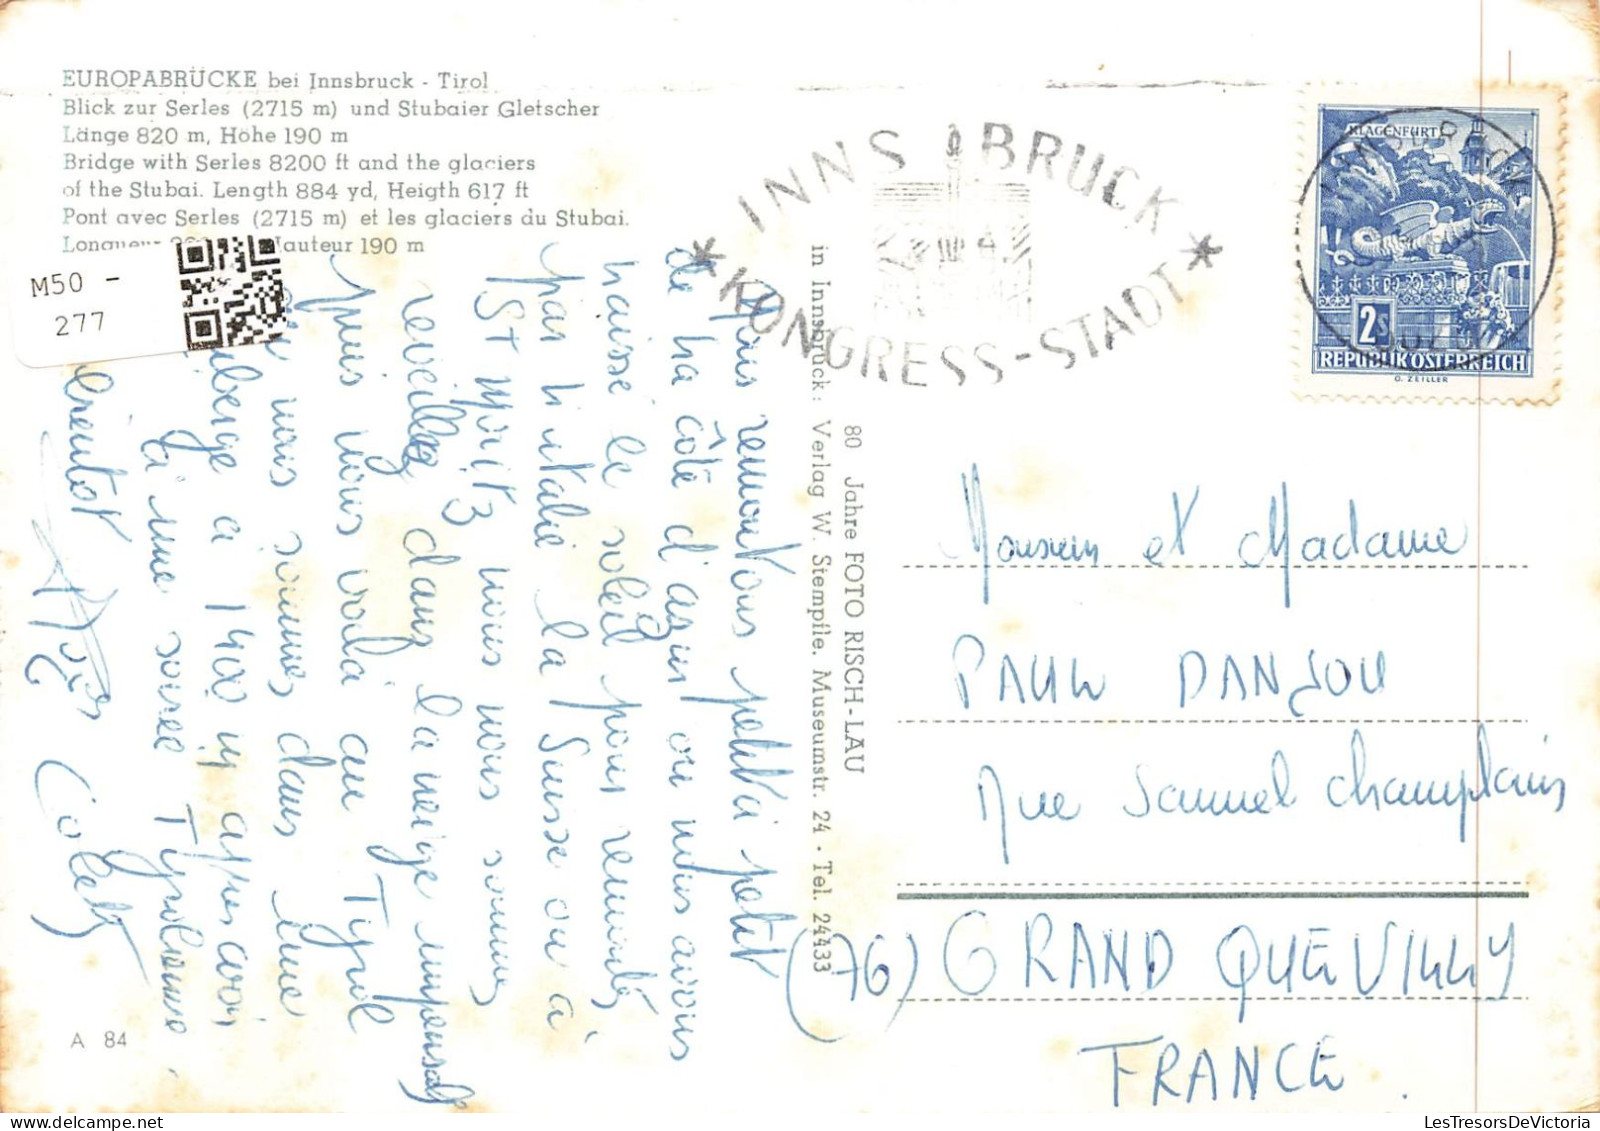 EUROPABRÜCKE bei Innsbruck - Tirol
Blick zur Serles (2715 m) und Stubaier Gletscher
Länge 820 m, Höhe 190 m
Bridge with Serles 8200 ft and the glaciers
of the Stubai. Length 884 yd, Heigth 617 ft
Pont avec Serles (2715 m) et les glaciers du Stubai.
Hauteur 190 m
M50 -
277
INNSBRUCK
* KONGRESS-STADT *
KLAGENFURT
2s
REPUBLIK ÖSTERREICH
O. ZEILLER
INNSBRUCK
Nous remontons petit à petit
de la côte d'azur ou nous avons
laissé le soleil pour remonter
par l'italie la Suisse ou à
ST Moritz nous nous sommes
reveillés dans la neige
puis nous voila au Tyrol
nous sommes dans une
auberge a 1400 m apres avoir
une soirée Tyrolienne.
Colette
80 Jahre FOTO RISCH-LAU
in Innsbruck: Verlag W. Stempfle. Museumstr. 24 - Tel. 24433
Monsieur et Madame
PAUL DANJOU
Rue Samuel Champlain
(76) GRAND QUEVILLY
FRANCE.
A 84
LesTresorsDeVictoria.com